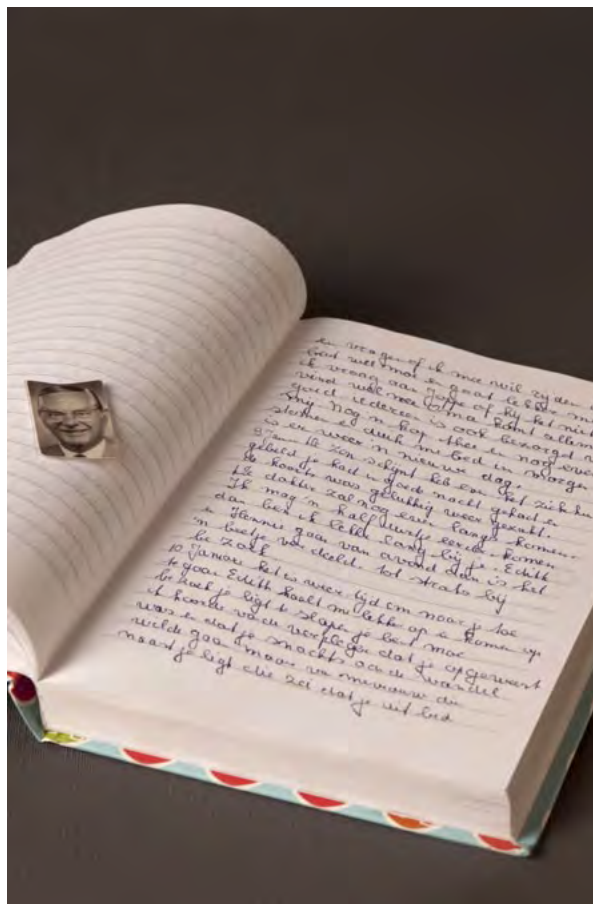 en vragen of ik mee wil rijden
best wel moe en gaat lekker
ik vraag aan Joppe of hij het niet
vind wel nee oma komt allem
goed iedereen is ook bezorgd
mij nog 'n kop thee en nog even
en duik me bed in morgen
is er weer 'n nieuwe dag.
9 Jan. De zon schijnt heb even het zieken
gebeld je had 'n goede nacht gehad en
de koorts was gelukkig weer gezakt.
De dokter zal nog even langs komen.
Ik mag 'n half uurtje eerder komen
dan ben ik lekker lang bij je. Edith
en Hennie gaan van avond dan is het
'n beetje verdeeld tot straks bij
be zoek
10 januari het is weer tijd om naar je toe
te gaan Edith haalt me lekker op en komen op
be zoek je ligt te slapen je bent moe
ik hoorde van de verpleger dat je opgewert
was en dat je snachts aan de wandel
wilde gaan maar van mevrouw die
naast je ligt die zei dat je uit bed